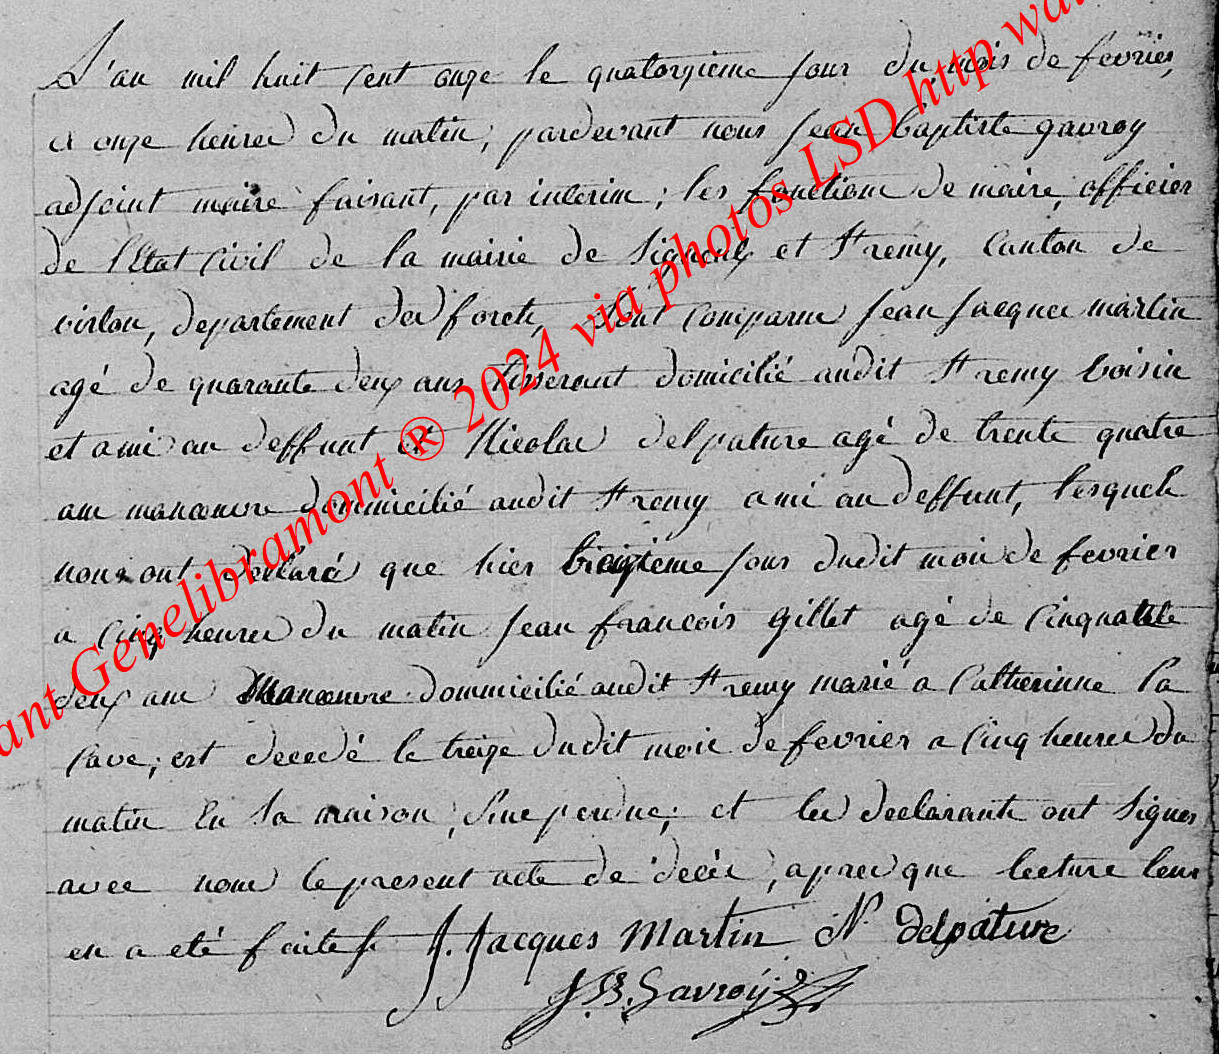 L'an mil huit cent onze le quatorzieme jour du mois de fevrier,
a onze heures du matin, pardevant nous jean baptiste gavroy
adjoint maire faisant, par interim; les fonctions de maire, officier
de l'Etat Civil de la mairie de Signeulx et St remy, Canton de
virton, departement des forets, sont comparus jean jacques martin
agé de quarante deux ans tisserant domicilié audit St remy voisin
et ami au deffunt et Nicolas delpature agé de trente quatre
ans manoeuvre dommicilié audit St remy ami au deffunt, lesquels
nous ont déclaré que hier jour dudit mois de fevrier
a cinq heures du matin jean francois gillet agé de cinquante
deux ans Manoeuvre dommicilié audit St remy marié a Catherinne la
cave; est decedé le treize dudit mois de fevrier a cinq heures du
matin En sa maison, et les declarants ont signés
avec nous le present acte de décés, apres que lecture leur
en a eté faite J. Jacques Martin N. delpature
J. B. Gavroy
ant Genelibramont ® 2024 via photos LSD http wa